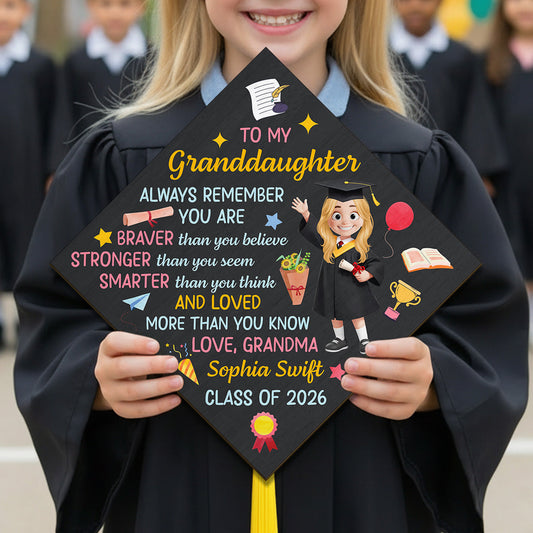 TO MY
Granddaughter
ALWAYS REMEMBER
YOU ARE
BRAVER than you believe
STRONGER than you seem
SMARTER than you think
AND LOVED
MORE THAN YOU KNOW
LOVE, GRANDMA
Sophia Swift
CLASS OF 2026